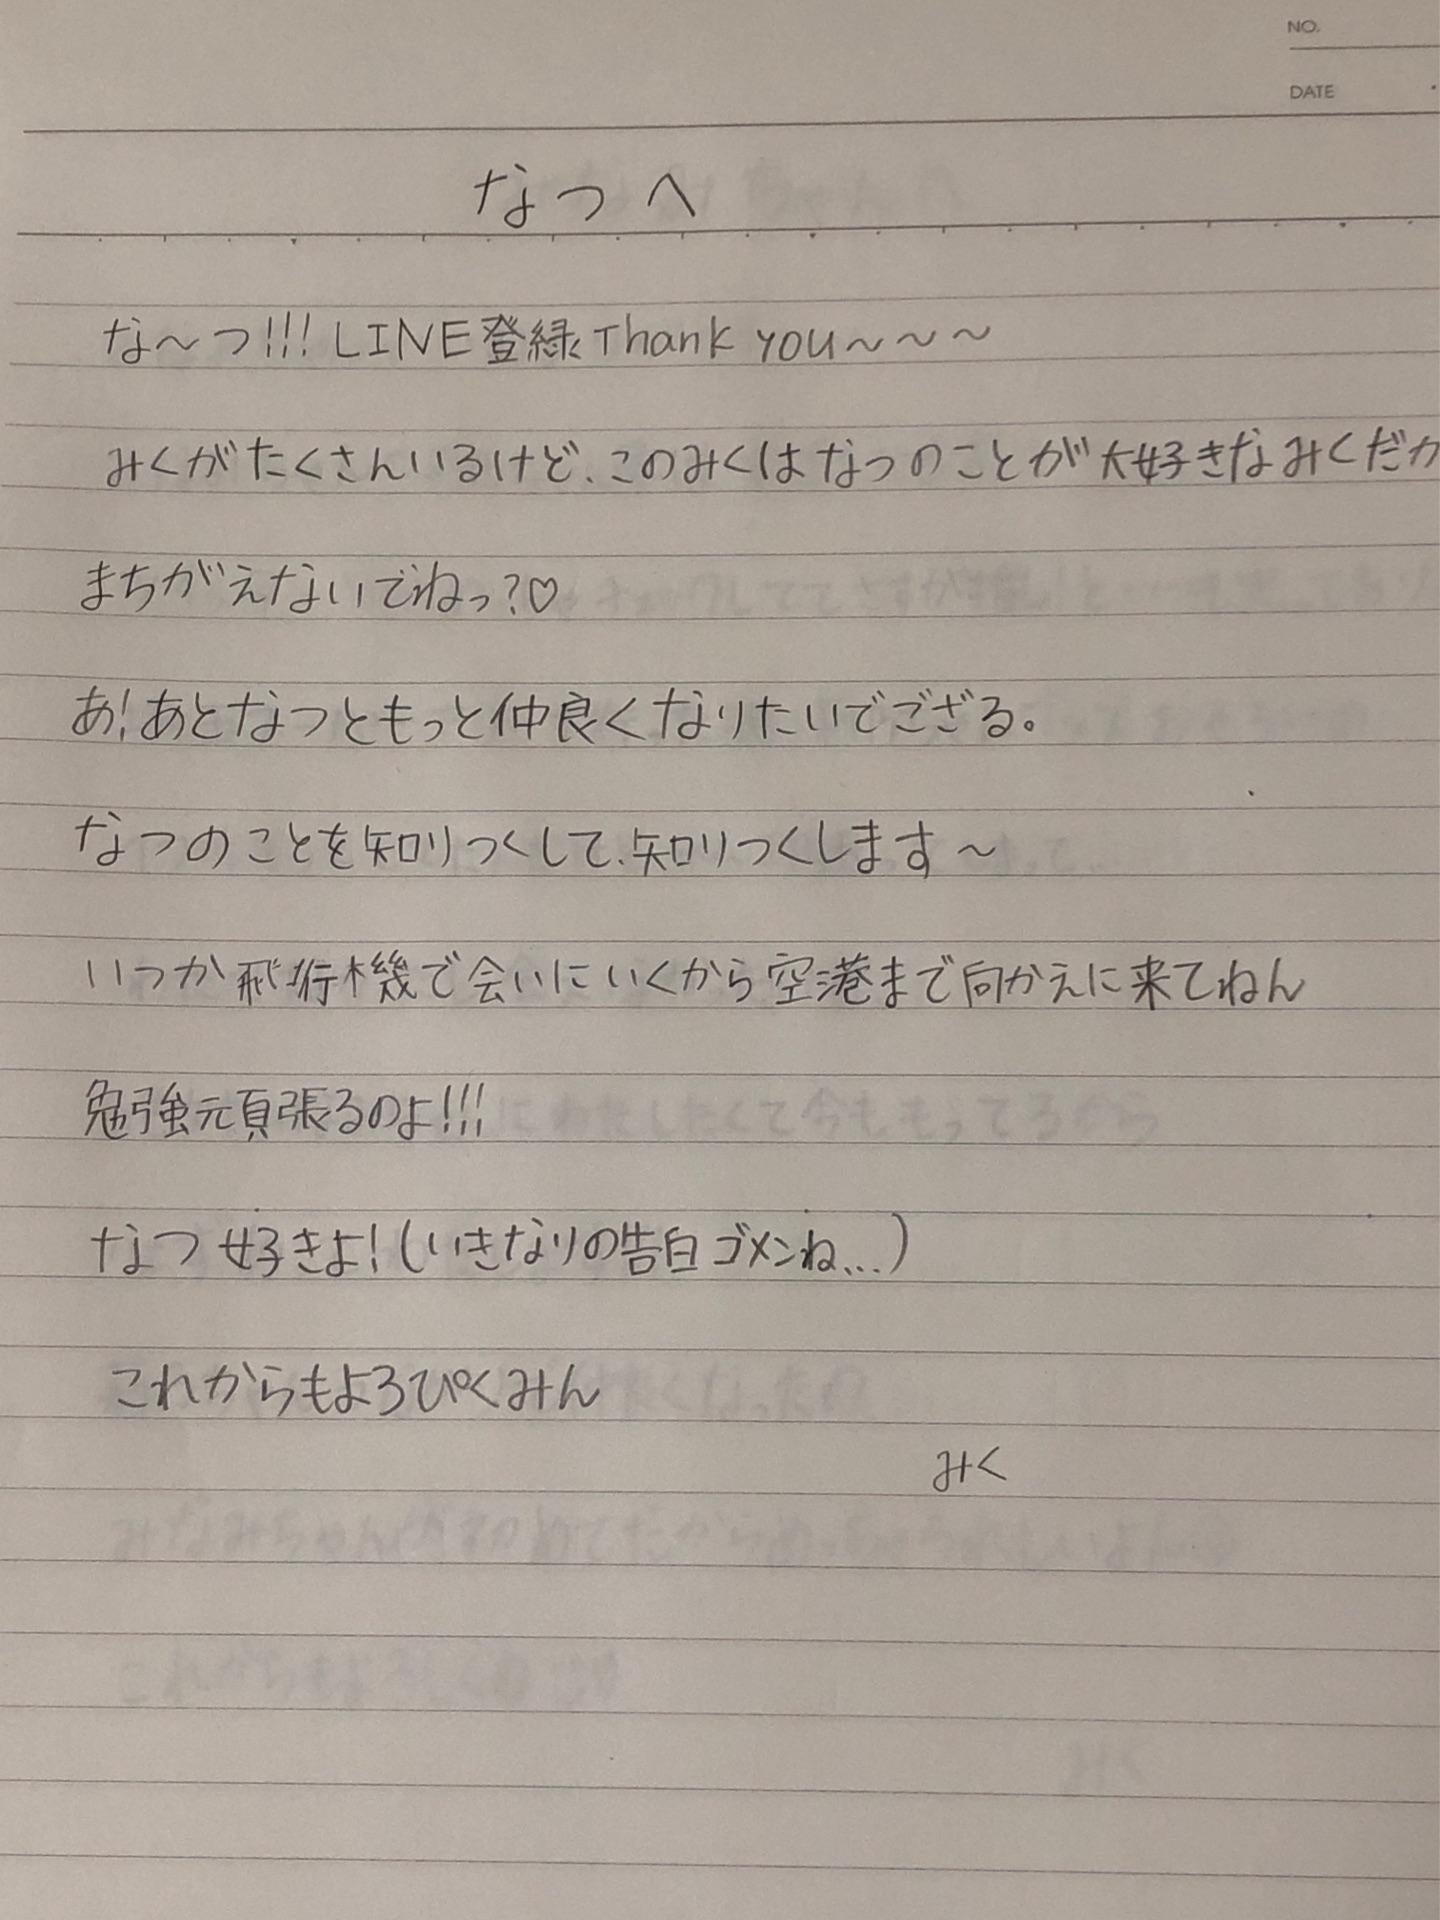 NO.
DATE
なつへ
な～つ!!! LINE登緑Thank you～～～
みくがたくさんいるけど、このみくはなつのことが大好きなみくだか
まちがえないでねっ?♡
あ!あとなつともっと仲良くなりたいでござる。
なつのことを知りつくして、知りつくします～
いつか飛行機で会いにいくから空港まで向かえに来てねん
勉強頑張るのよ!!!
なつ好きよ!(いきなりの告白ゴメンね...)
これからもよろぴくみん
みく